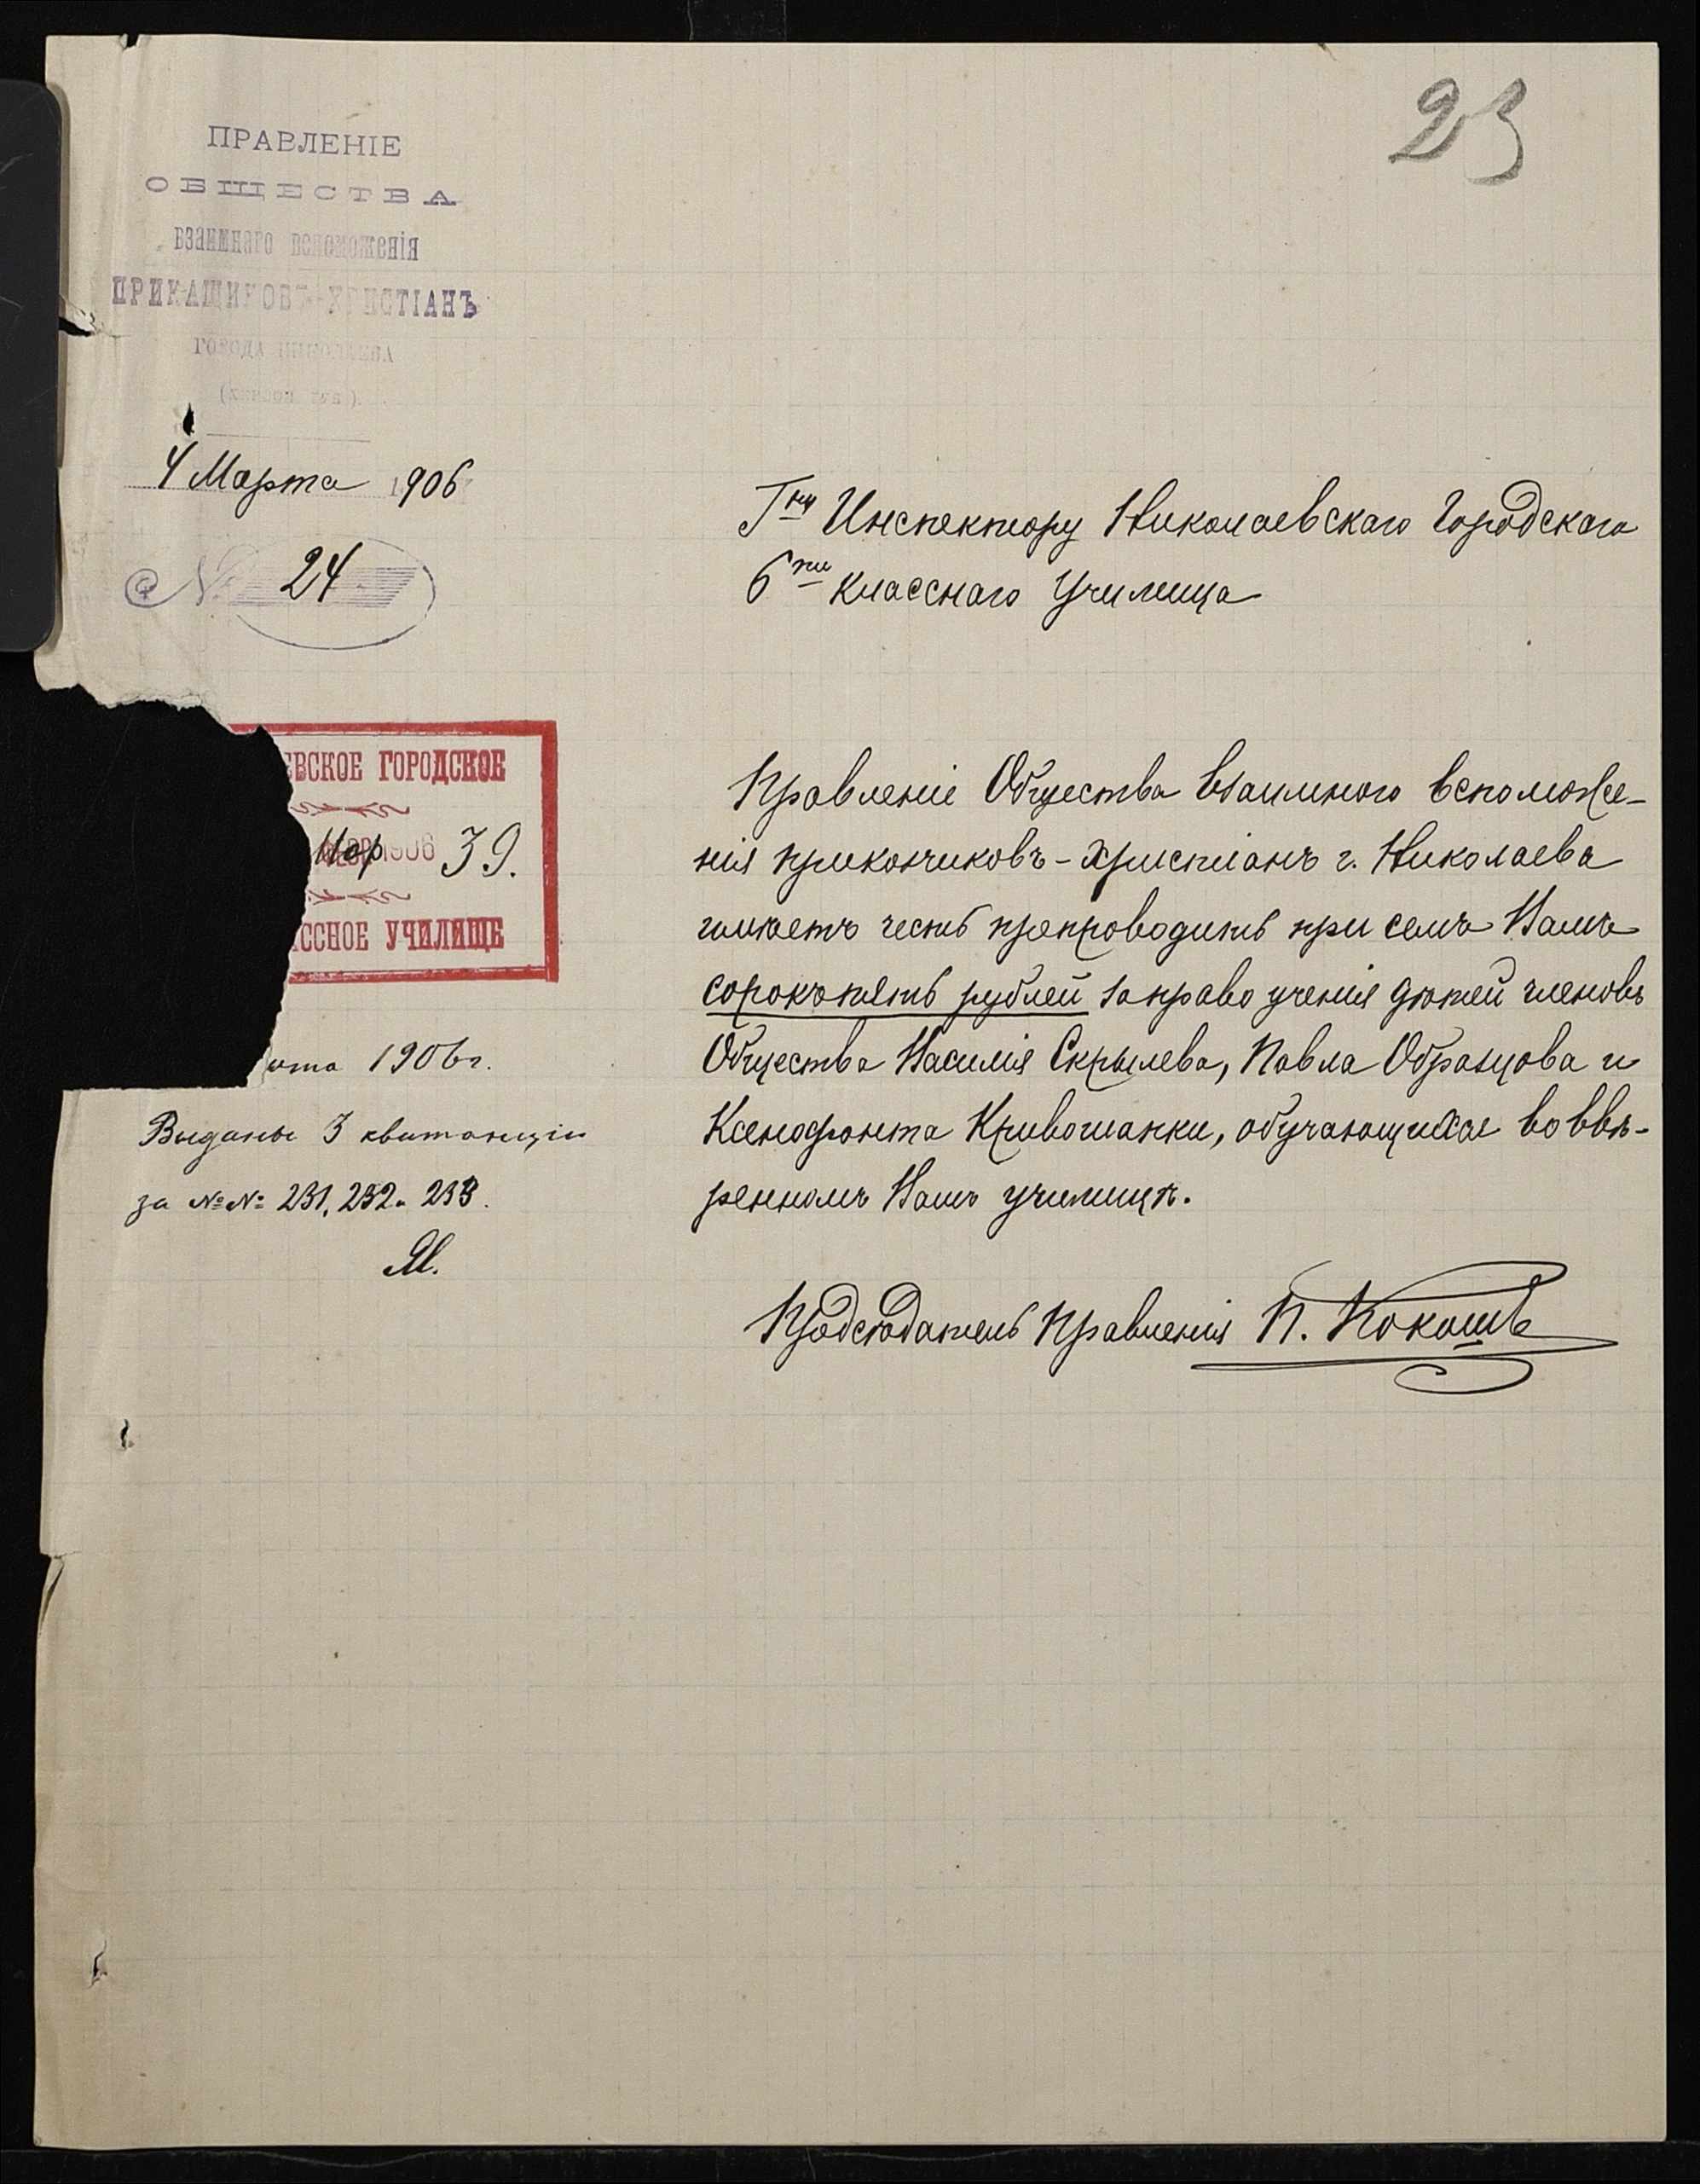 23
ПРАВЛЕНІЕ
ОБЩЕСТВА
взаимнаго вспоможенія
ПРИКАЩИКОВЪ-ХРИСТІАНЪ
ГОРОДА НИКОЛАЕВА
(ХЕРСОН. ГУБ.)
4 Марта 1906
№ 24
Гну Инспектору Николаевскаго Городского
6ти класснаго Училища
ЕВСКОЕ ГОРОДСКОЕ
Мар 1906 39.
ССНОЕ УЧИЛИЩЕ
рта 1906 г.
Выданы 3 квитанціи
за №№ 231, 232 и 233.
Правленіе Общества взаимного вспоможе-
нія приканчиковъ-христіанъ г. Николаева
имѣетъ честь препроводить при семъ Вамъ
сорокъ пять рублей за право ученія дѣтей членовъ
Общества Василія Скрылева, Павла Образцова и
Ксенофонта Кривошапки, обучающихся во ввѣ-
ренномъ Вамъ училищѣ.
Предсѣдатель Правленія П.